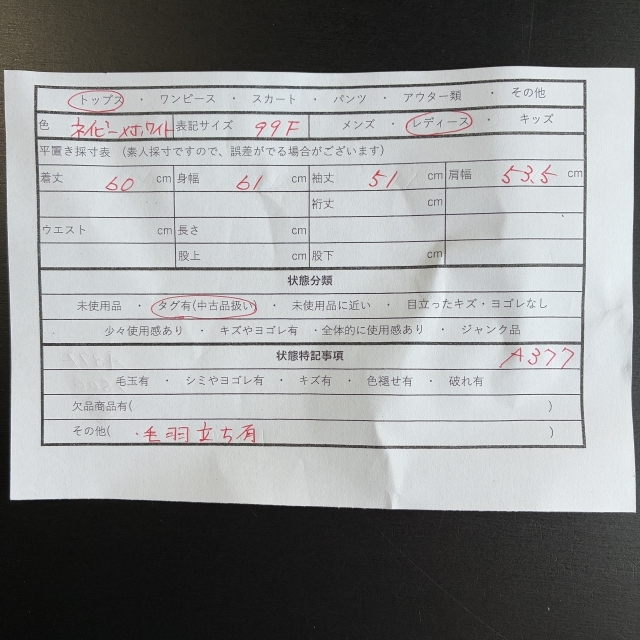 トップス ・ ワンピース ・ スカート ・ パンツ ・ アウター類 ・ その他
色 ネイビー×ホワイト 表記サイズ 99F メンズ ・ レディース ・ キッズ
平置き採寸表 (素人採寸ですので、誤差がでる場合がございます)
着丈 60 cm 身幅 61 cm 袖丈 51 cm 肩幅 53.5 cm
裄丈 cm
ウエスト cm 長さ cm
股上 cm 股下 cm
状態分類
未使用品 ・ タグ有(中古品扱い) ・ 未使用品に近い ・ 目立ったキズ・ヨゴレなし
少々使用感あり ・ キズやヨゴレ有 ・全体的に使用感あり ・ ジャンク品
状態特記事項 A377
毛玉有 ・ シミやヨゴレ有 ・ キズ有 ・ 色褪せ有 ・ 破れ有
欠品商品有( )
その他( ・毛羽立ち有 )